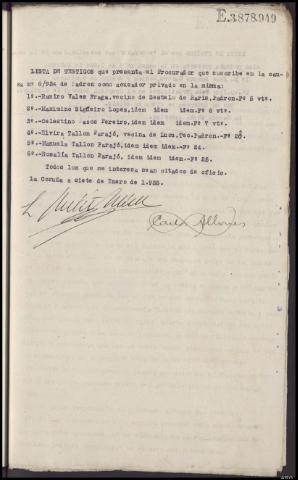 E.3.878.949
LISTA DE TESTIGOS que presenta el Procurador que suscribe en la cau-
sa nº 6/934 de Padron como acusador privado en la misma:
1º.-Ramiro Vales Braga, vecino de Sestelo de Maria, Padron.-Fº 5 vto.
2º.-Maximino Sigueiro Lopez, idem idem.-Fº 6 vto.
3º.-Celestino Pazos Pereiro, idem idem idem.-Fº 7 vto.
4º.-Elvira Tallon Farajó, vecina de Padron.-Fº
5º.-Manuela Tallon Farajó, idem idem idem.-Fº 24.
6º.-Rosalía Tallon Farajó, idem idem idem.-Fº 25.
Todos los que me interesa sean citados de oficio.
La Coruña a siete de Enero de 1.935.